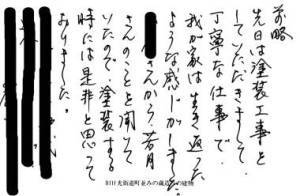 前略
先日は塗装工事を
していただきまして
丁寧な仕事で
我が家は生き返った
ような感じがしました。
さんから若月
さんのことを聞いて
いたので、塗装する
時には是非と思って
おりました。
光街道町並みの の建物